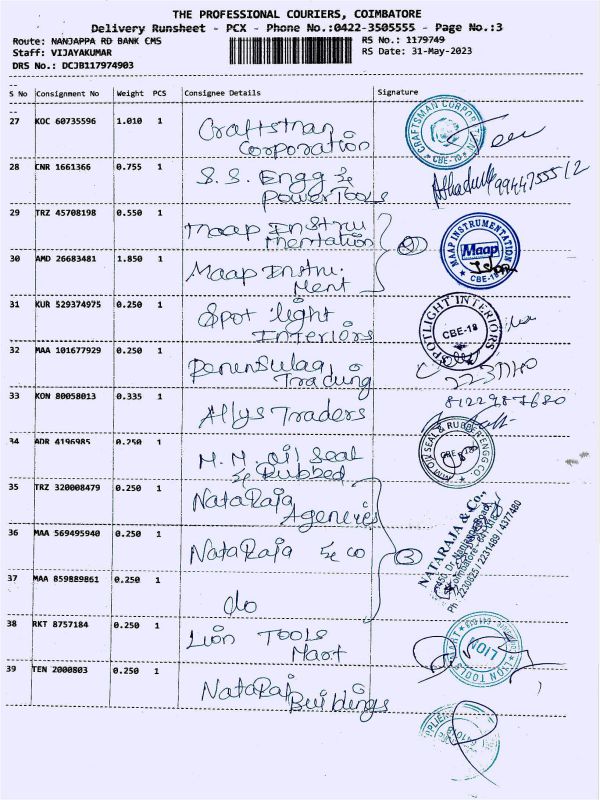 THE PROFESSIONAL COURIERS, COIMBATORE
Delivery Runsheet - PCX - Phone No.:0422-3505555 - Page No.:3
Route: NANJAPPA RD BANK CMS
RS No.: 1179749
Staff: VIJAYAKUMAR
RS Date: 31-May-2023
DRS No.: DCJB117974903
S No Consignment No Weight PCS Consignee Details Signature
27 KOC 60735596 1.010 1 Craftsman
Corporation
CRAFTSMAN CORPORATION
CBE-18
28 CNR 1661366 0.755 1 S.S. Engg &
PowerTools
29 TRZ 45708198 0.550 1 Maap Instru
mentation
30 AMD 26683481 1.850 1 Maap Instru.
Ment
2
MAAP INSTRUMENTATION
Maap
CBE-18
31 KUR 529374975 0.250 1 Spot light
Interiors
SPOTLIGHT INTERIORS
CBE-18
32 MAA 101677929 0.250 1 Penensulaa
Trading
33 KON 80058013 0.335 1 Allys Traders
8122987680
34 ADR 4196985 0.250 1 M.M. oil Seal
& Rubbed
MM OIL SEAL & RUBBER ENGG CO
35 TRZ 320008479 0.250 1 NataRaja
Agencies
36 MAA 569495940 0.250 1 NataRaja & co
3
NATARAJA & Co.,
Ph : 2230625 / 2231489 / 4377480
37 MAA 859889861 0.250 1
do
38 RKT 8757184 0.250 1 Lion TOOLS
Mart
LION
39 TEN 2000803 0.250 1 NataRaj
Buildings